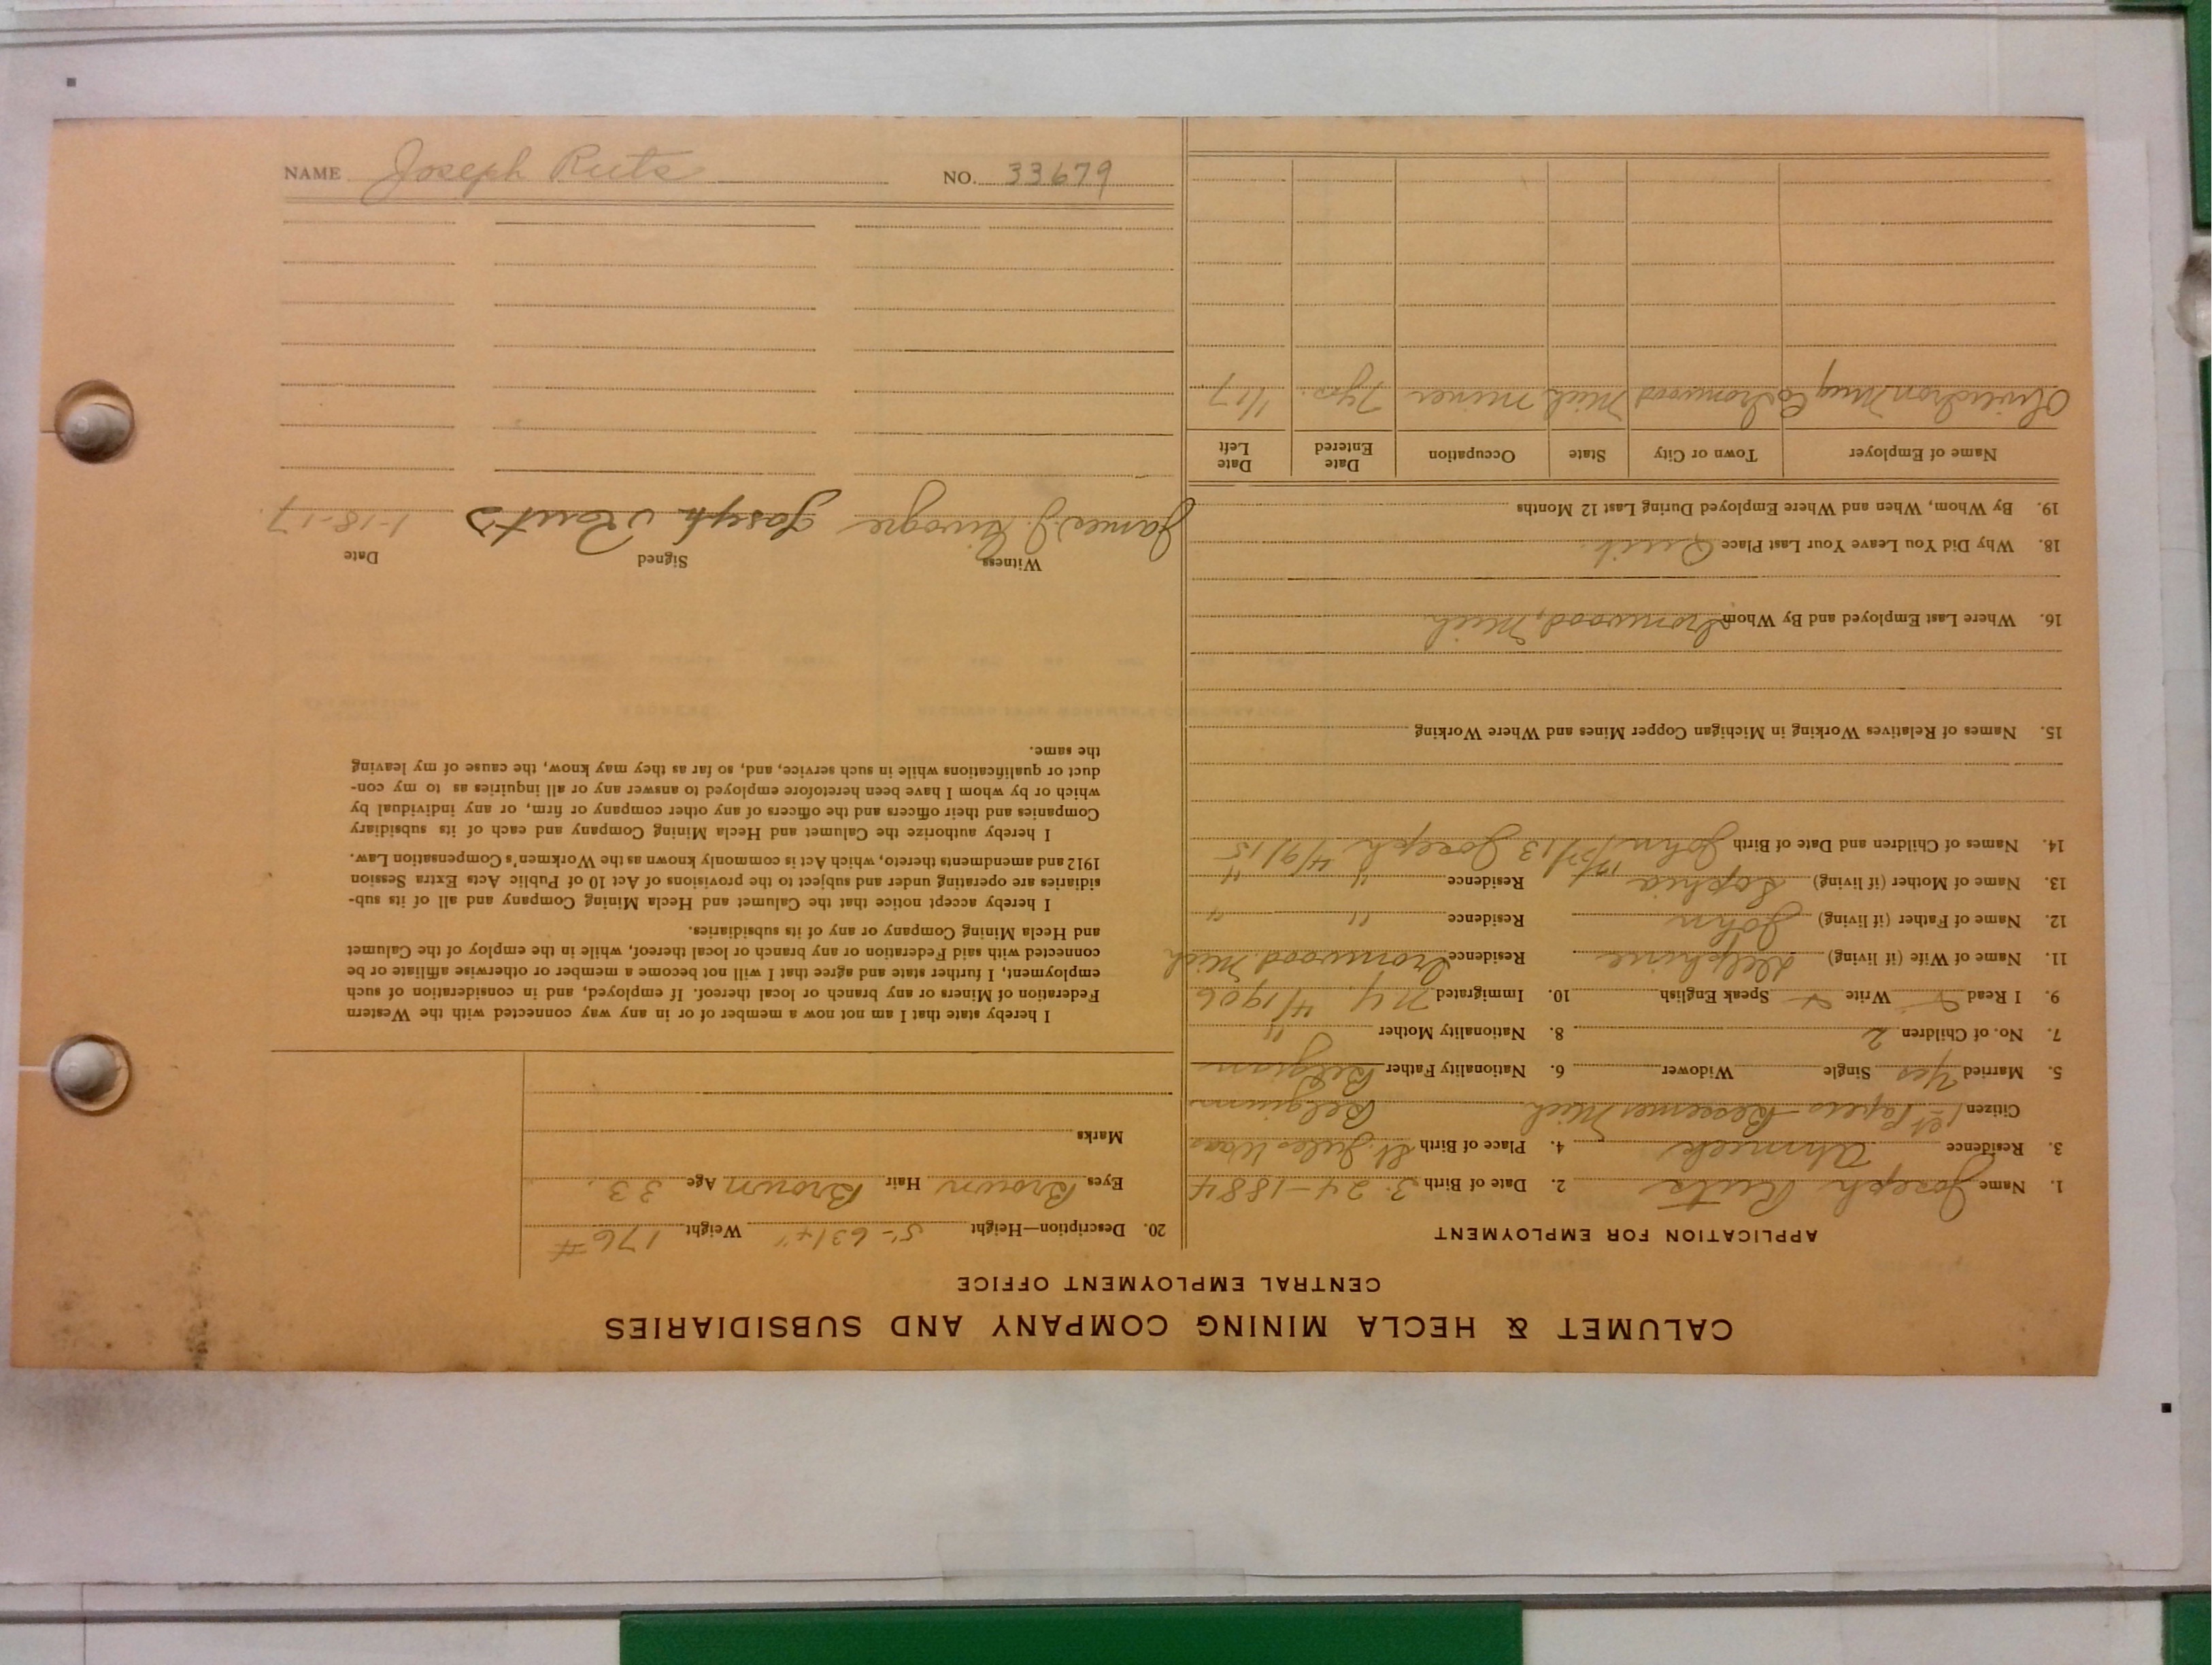 CALUMET & HECLA MINING COMPANY AND SUBSIDIARIES
CENTRAL EMPLOYMENT OFFICE
APPLICATION FOR EMPLOYMENT
1. Name Joseph Ruts 2. Date of Birth 3-24-1884
3. Residence Ahmeek 4. Place of Birth St. Giles Waas
Citizen 1st Papers Bessemer Mich Belgium
5. Married Yes Single Widower 6. Nationality Father Belgian
7. No. of Children 2 8. Nationality Mother "
9. I Read Write Speak English 10. Immigrated N.Y. 4/1906
11. Name of Wife (if living) Delphine Residence Ironwood Mich
12. Name of Father (if living) John Residence " "
13. Name of Mother (if living) Sophia Residence " "
14. Names of Children and Date of Birth John /13 Joseph 4/9/15
15. Names of Relatives Working in Michigan Copper Mines and Where Working
16. Where Last Employed and By Whom Ironwood, Mich
18. Why Did You Leave Your Last Place Quit.
19. By Whom, When and Where Employed During Last 12 Months
Name of Employer Town or City State Occupation Date Entered Date Left
Iron Mng Co Ironwood Mich miner 7 yrs. 1/17
20. Description—Height 5'-6 3/4" Weight 176 #
Eyes Brown Hair Brown Age 33.
Marks
I hereby state that I am not now a member of or in any way connected with the Western
Federation of Miners or any branch or local thereof. If employed, and in consideration of such
employment, I further state and agree that I will not become a member or otherwise affiliate or be
connected with said Federation or any branch or local thereof, while in the employ of the Calumet
and Hecla Mining Company or any of its subsidiaries.
I hereby accept notice that the Calumet and Hecla Mining Company and all of its sub-
sidiaries are operating under and subject to the provisions of Act 10 of Public Acts Extra Session
1912 and amendments thereto, which Act is commonly known as the Workmen's Compensation Law.
I hereby authorize the Calumet and Hecla Mining Company and each of its subsidiary
Companies and their officers and the officers of any other company or firm, or any individual by
which or by whom I have been heretofore employed to answer any or all inquiries as to my con-
duct or qualifications while in such service, and, so far as they may know, the cause of my leaving
the same.
Witness Signed Date
James J. Joseph Rauts 1-18-17.
NAME Joseph Ruts NO. 33679